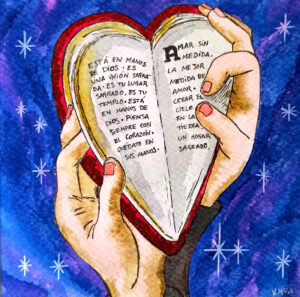 ESTÁ EN MANOS
DE DIOS. ES
UNA UNIÓN SAGRA-
DA. ES TU LUGAR
SAGRADO, ES TU
TEMPLO. ESTÁ
EN MANOS DE
DIOS. PIENSA
SIEMPRE CON
EL CORAZÓN.
QUÉDATE EN
SUS MANOS.
AMAR SIN
MEDIDA.
LA MEJOR
MEDIDA DE
AMOR.
CREAR EL
CIELO
EN LA
TIERRA.
UN HOGAR
SAGRADO.